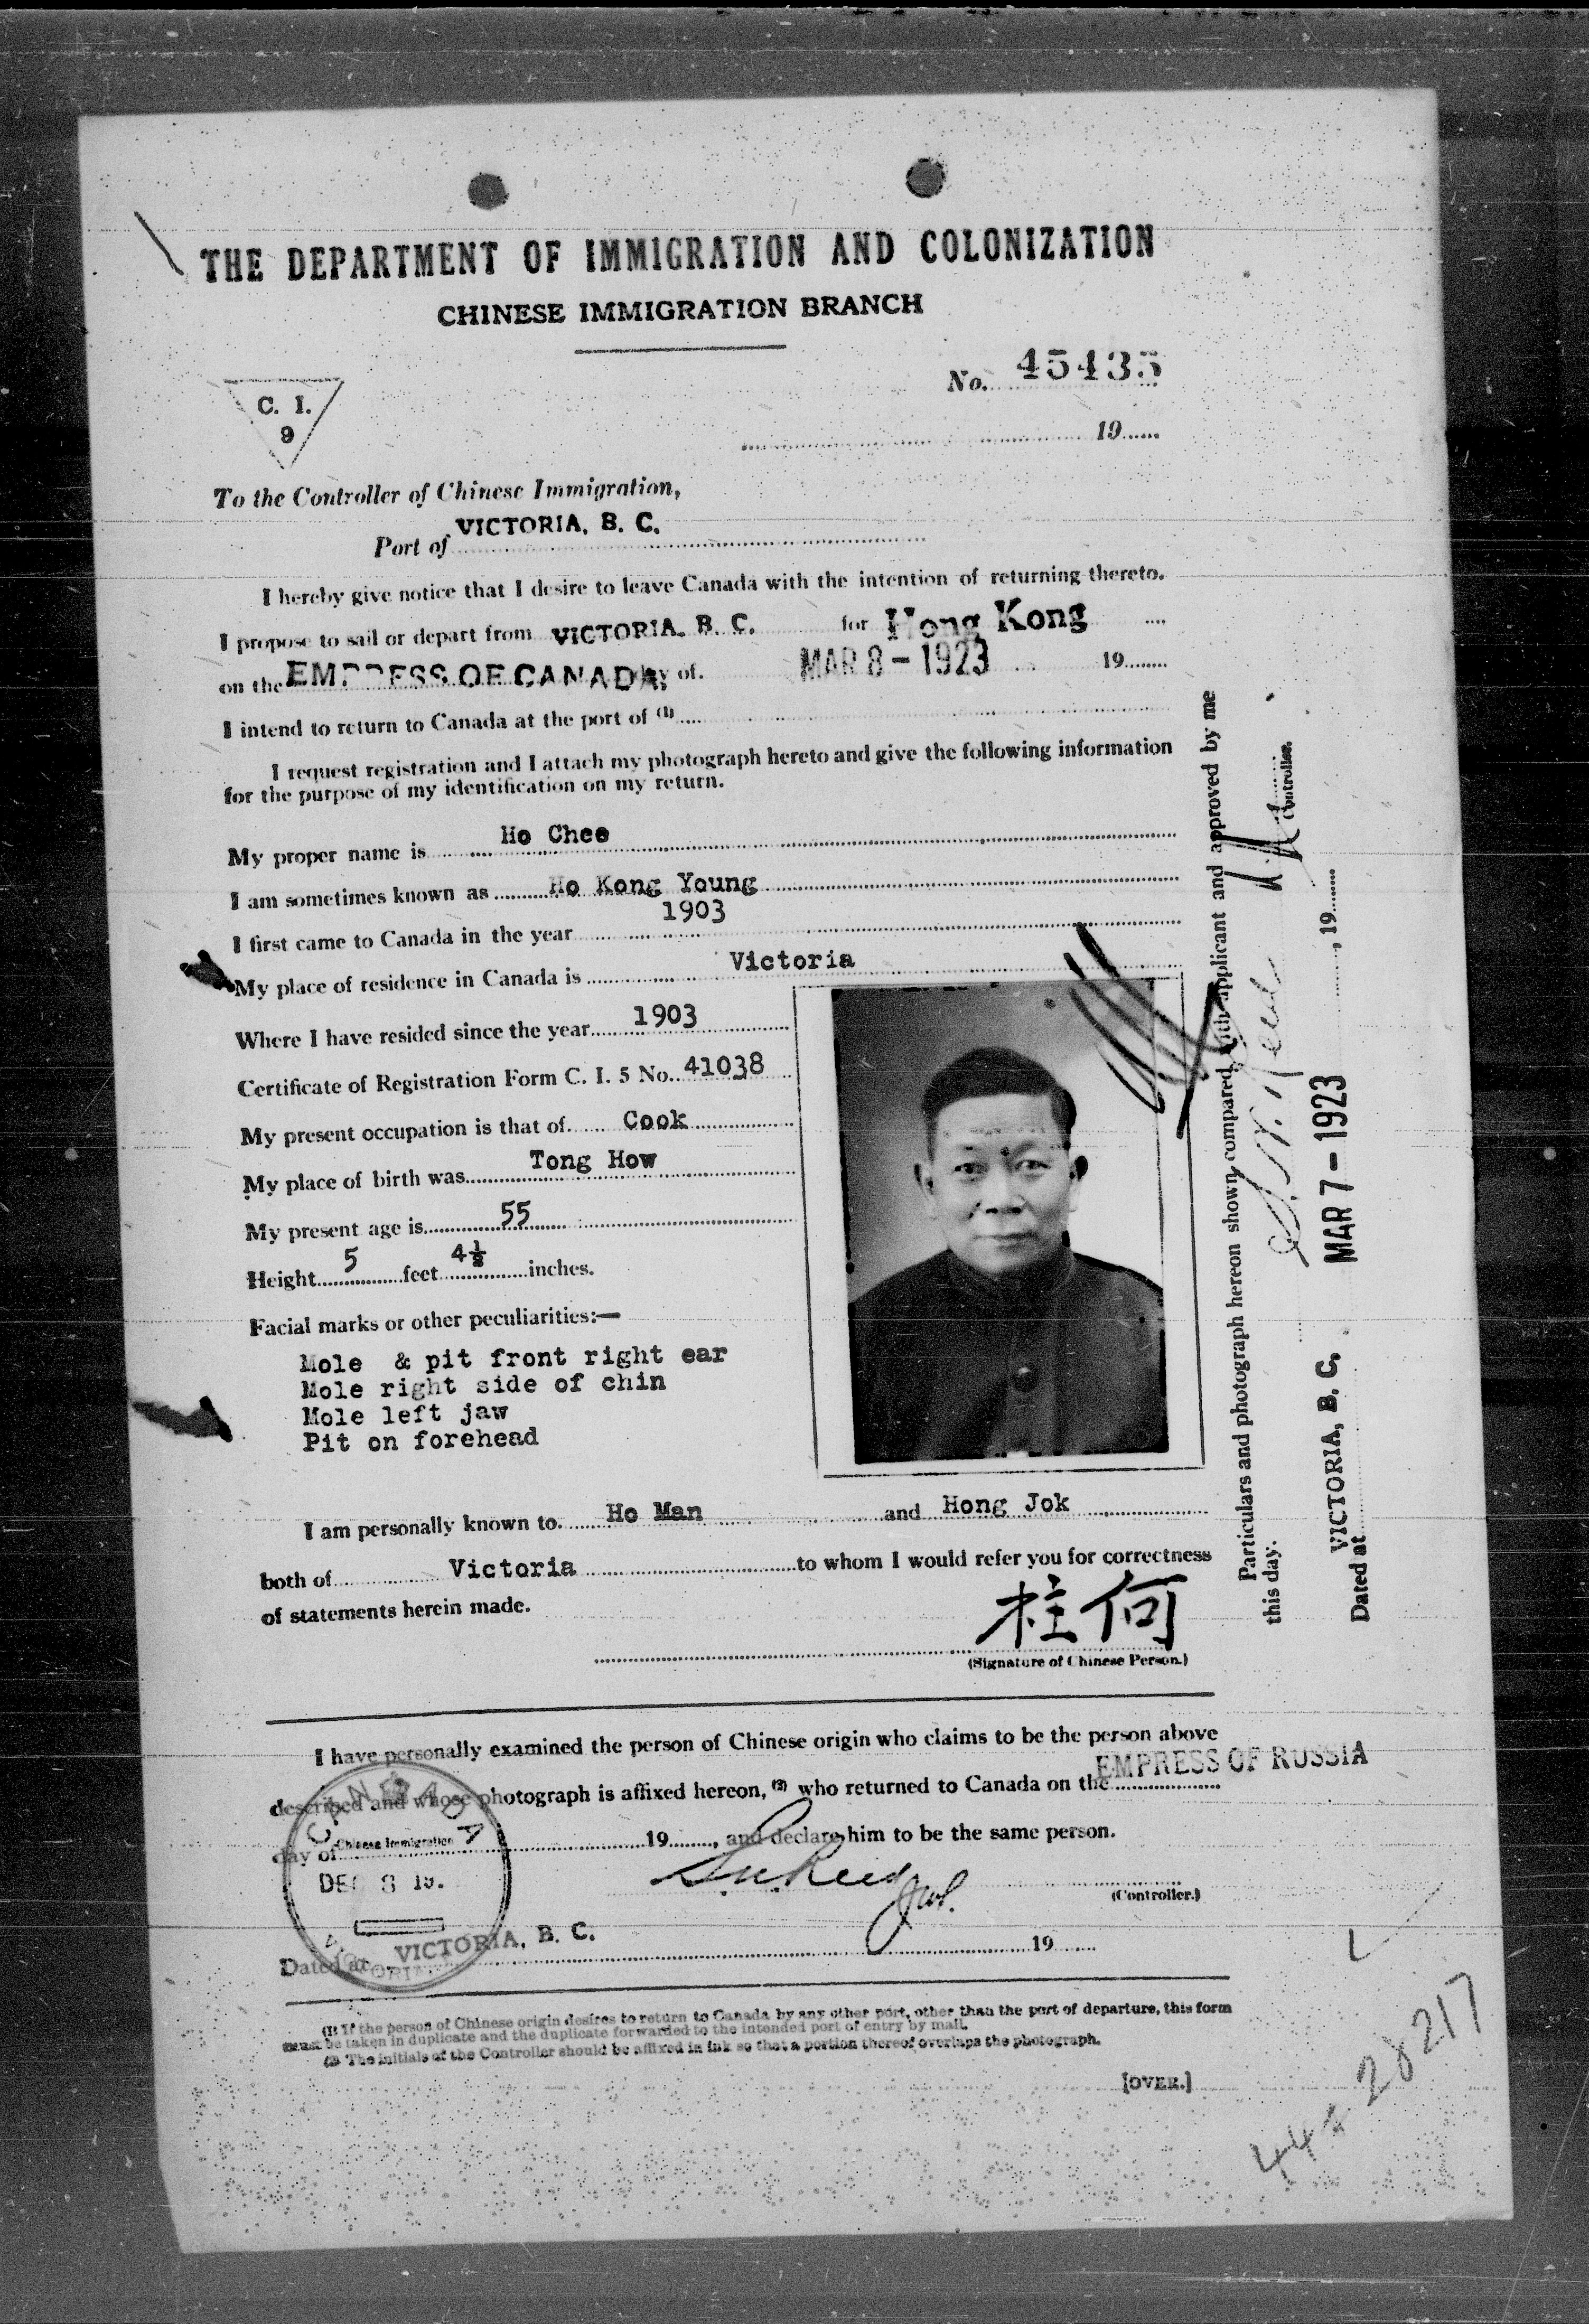 THE DEPARTMENT OF IMMIGRATION AND COLONIZATION
CHINESE IMMIGRATION BRANCH
No. 45435
C. I.
9
19
To the Controller of Chinese Immigration,
Port of VICTORIA, B. C.
I hereby give notice that I desire to leave Canada with the intention of returning thereto.
I propose to sail or depart from VICTORIA, B. C. for Hong Kong
on the EMPRESS OF CANADA day of MAR 8 - 1923 19
I intend to return to Canada at the port of (1)
I request registration and I attach my photograph hereto and give the following information
for the purpose of my identification on my return.
My proper name is Ho Chee
I am sometimes known as Ho Kong Young
I first came to Canada in the year 1903
My place of residence in Canada is Victoria
Where I have resided since the year 1903
Certificate of Registration Form C. I. 5 No. 41038
My present occupation is that of Cook
My place of birth was Tong How
My present age is 55
Height 5 feet 4½ inches.
Facial marks or other peculiarities:—
Mole & pit front right ear
Mole right side of chin
Mole left jaw
Pit on forehead
I am personally known to Ho Man and Hong Jok
both of Victoria to whom I would refer you for correctness
of statements herein made.
柱何
(Signature of Chinese Person.)
Particulars and photograph hereon shown, compared with applicant and approved by me
this day.
Controller.
Dated at VICTORIA, B. C. MAR 7 - 1923, 19
I have personally examined the person of Chinese origin who claims to be the person above
described and whose photograph is affixed hereon, (2) who returned to Canada on the EMPRESS OF RUSSIA
day of 19, and declare him to be the same person.
CANADA
Chinese Immigration
DEC 8 19
VICTORIA
(Controller.)
Dated at VICTORIA, B. C. 19
(1) If the person of Chinese origin desires to return to Canada by any other port, other than the port of departure, this form
must be taken in duplicate and the duplicate forwarded to the intended port of entry by mail.
(2) The initials of the Controller should be affixed in ink so that a portion thereof overlaps the photograph.
[OVER.]
28217